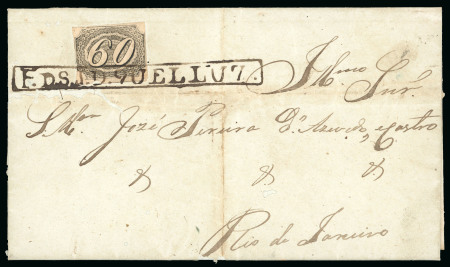 60
F.DS.J.D.QUELLUZ.
Illmo Snr.
José Pereira d'Azevedo, e Castro
& & &
Rio de Janeiro